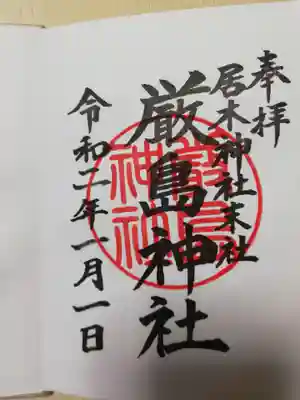 奉拝
居木神社末社
厳島神社
令和二年一月一日
嚴島神社